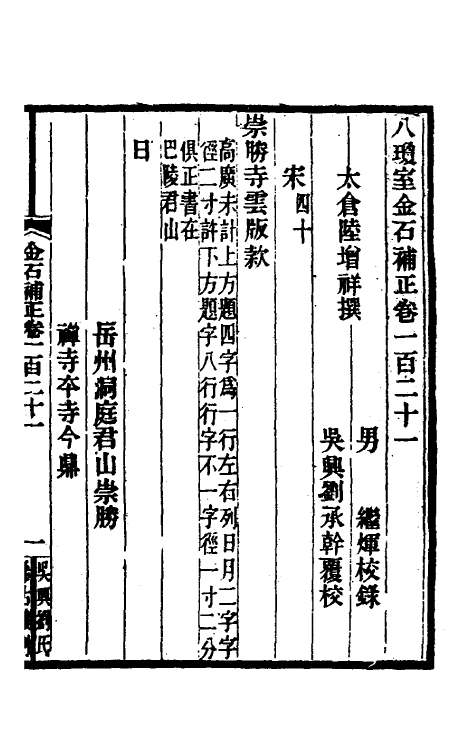 八瓊室金石補正卷一百二十一
太倉陸增祥撰
男 繼煇校錄
吳興劉承幹覆校
宋四十
崇勝寺雲版款
高廣未計上方題四字爲一行左右列日月二字字
徑二寸許下方題字八行行字不一字徑一寸二分
俱正書在
巴陵君山
日
岳州洞庭君山崇勝
禪寺夲寺今鼎
金石補正卷一百二十一
一
吳興劉氏